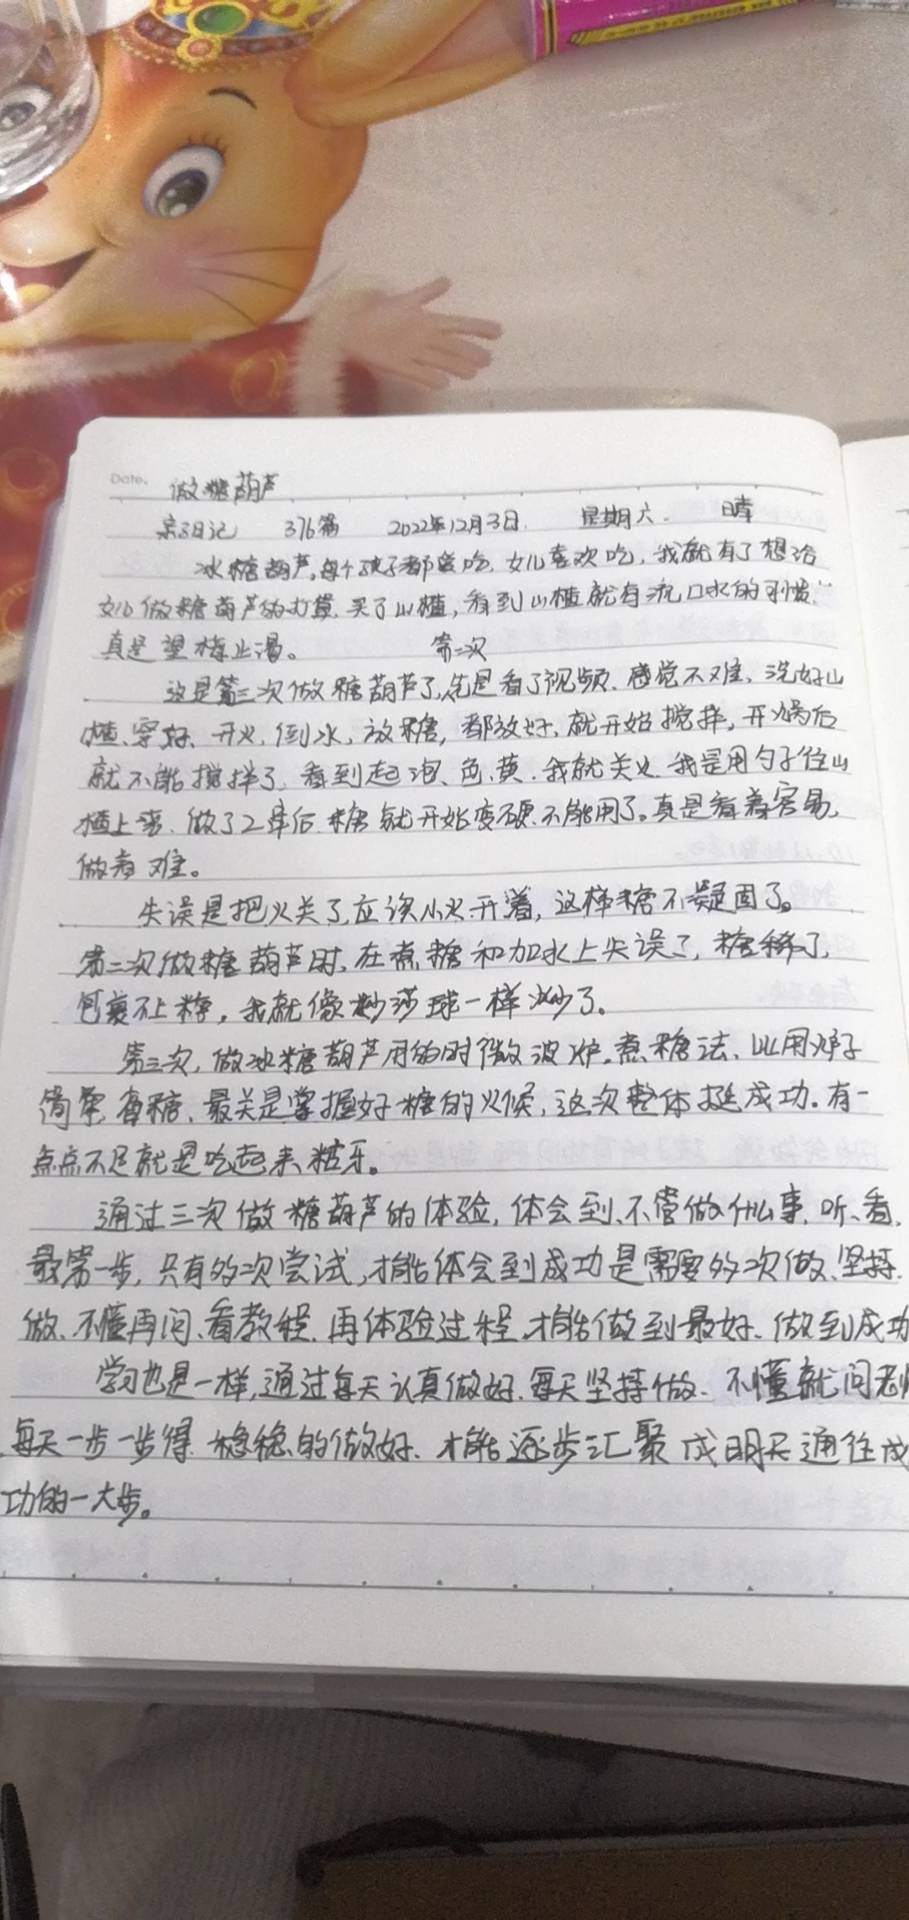 Date.
做糖葫芦
亲子日记 376篇 2022年12月3日 星期六. 晴
冰糖葫芦,每个孩子都爱吃,女儿喜欢吃,我就有了想给
女儿做糖葫芦的打算,买了山楂,看到山楂就有流口水的习惯,
真是望梅止渴。 第一次
这是第三次做糖葫芦了,先是看了视频,感觉不难,洗好山
楂、穿好、开火,倒水,放糖,都放好,就开始搅拌,开锅后
就不能搅拌了,看到起泡、色黄,我就关火,我是用勺子往山
楂上浇,做了2串后,糖就开始变硬,不能用了。真是看着容易,
做着难。
失误是把火关了,应该小火开着,这样糖不凝固了。
第二次做糖葫芦时,在熬糖和加水上失误了,糖稀了,
包裹不上糖,我就像炒莎球一样炒了。
第三次,做冰糖葫芦用的时微波炉,熬糖法、比用炉子
简单,省糖、最关是掌握好糖的火候,这次整体挺成功。有一
点点不足就是吃起来粘牙。
通过三次做糖葫芦的体验,体会到、不管做什么事,听、看,
最第一步,只有多次尝试,才能体会到成功是需要多次做、坚持
做、不懂再问、看教程,再体验过程,才能做到最好、做到成功
学习也是一样,通过每天认真做好,每天坚持做、不懂就问老师
每天一步一步得 稳稳的做好、才能逐步汇聚成明天通往成
功的一大步。